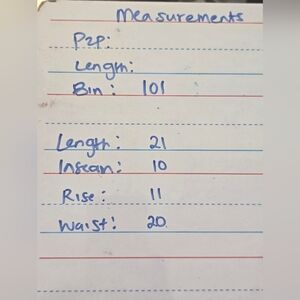 Measurements
P2P:
Length:
Bin: 101
Length: 21
Inseam: 10
Rise: 11
Waist: 20